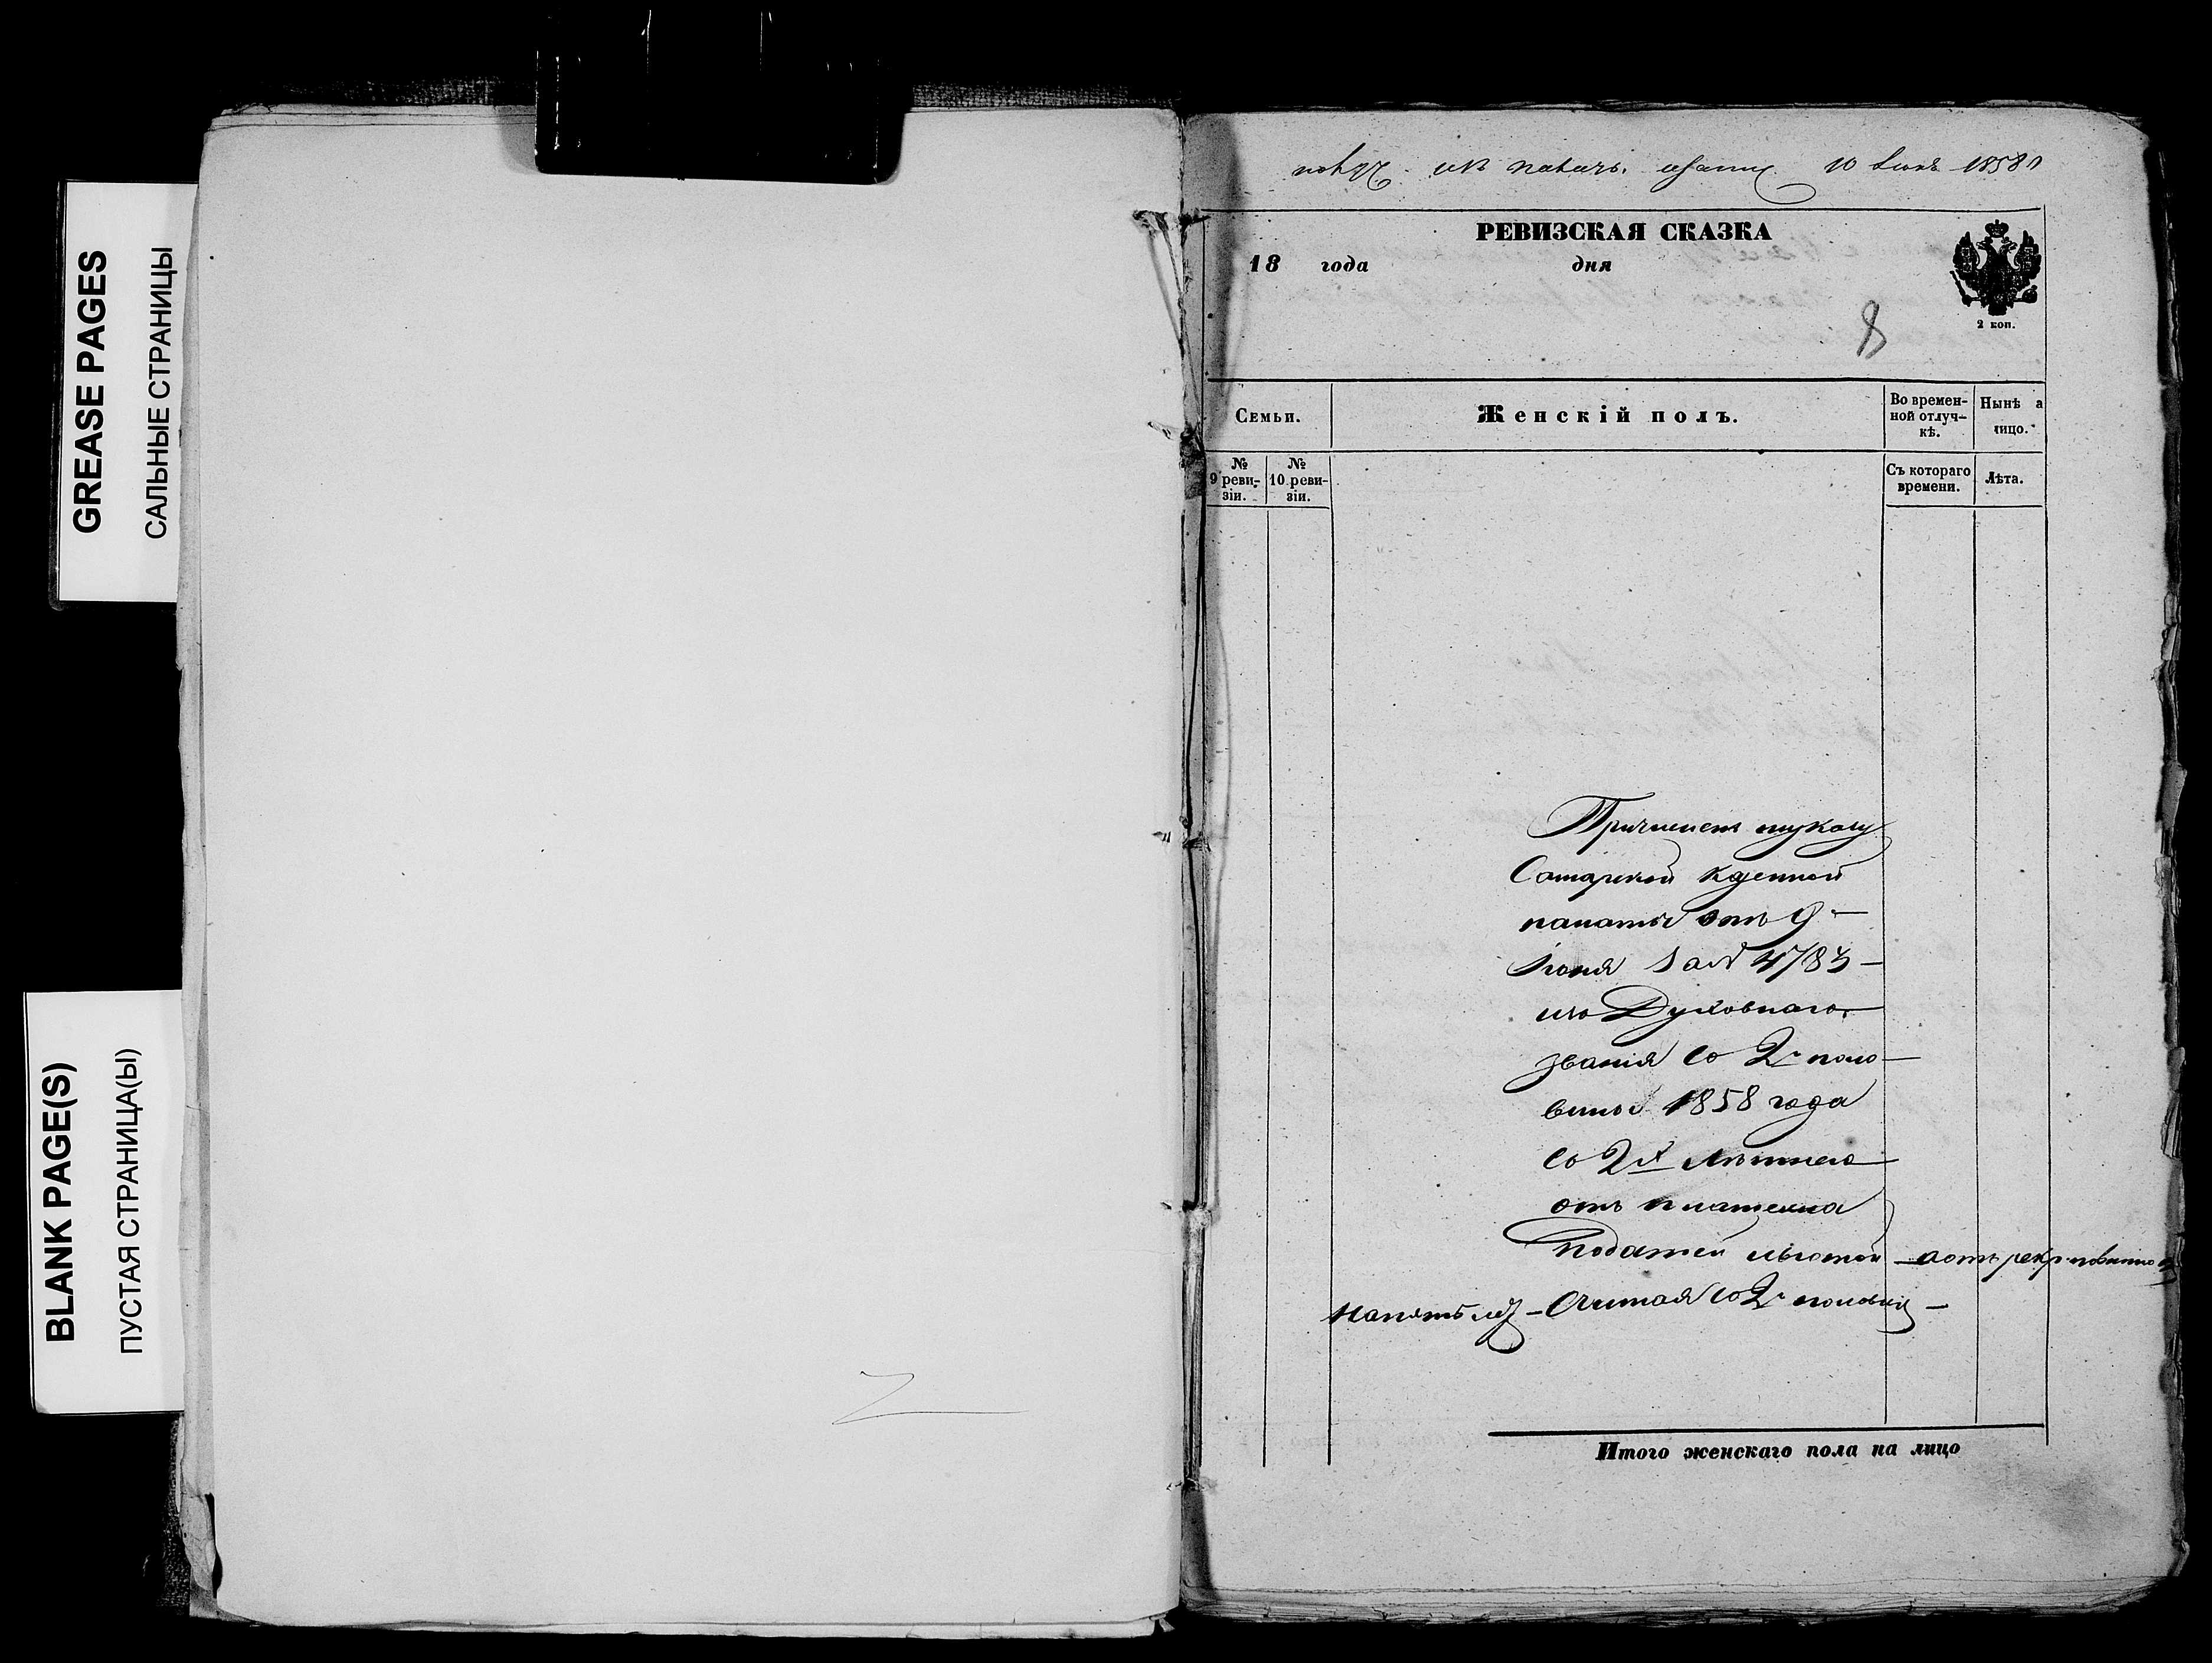 GREASE PAGES
САЛЬНЫЕ СТРАНИЦЫ
BLANK PAGE(S)
ПУСТАЯ СТРАНИЦА(Ы)
10 Іюня 1858
РЕВИЗСКАЯ СКАЗКА
18 года дня
2 коп.
8
Семьи.
Женскій полъ.
Во времен-
ной отлуч-
кѣ.
Нынѣ а
лицо.
№
9 реви-
зіи.
№
10 реви-
зіи.
Съ котораго
времени.
Лѣта.
Причисленъ по указу
Самарской казенной
палаты отъ 9
Іюня за № 4783
изъ Духовнаго
званія со 2й поло-
вины 1858 года
со 2х лѣтнею
отъ платежа
податей льготой а отъ рекр. повинно
на пять лѣт считая со 2й половины
Итого женскаго пола на лицо